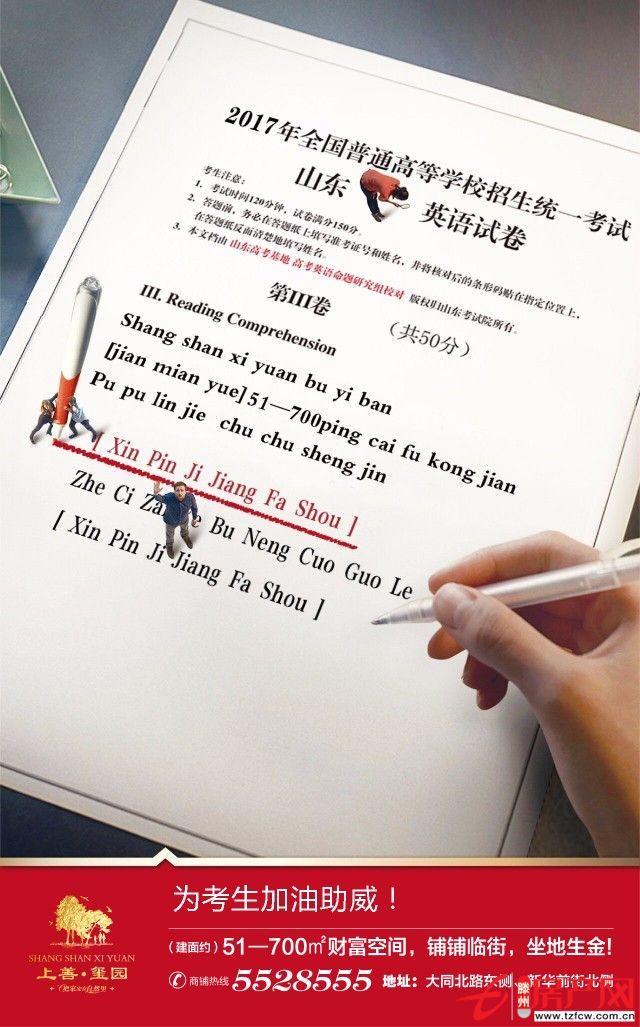 2017年全国普通高等学校招生统一考试
山东 英语试卷
考生注意：
1. 考试时间120分钟，试卷满分150分。
2. 答题前，务必在答题纸上填写准考证号和姓名，并将核对后的条形码贴在指定位置上，
在答题纸反面清楚地填写姓名。
3. 本文档由 山东高考基地 高考英语命题研究组校对 版权归山东考试院所有。
第III卷
(共50分)
III. Reading Comprehension
Shang shan xi yuan bu yi ban
[jian mian yue] 51—700ping cai fu kong jian
Pu pu lin jie chu chu sheng jin
[ Xin Pin Ji Jiang Fa Shou ]
Zhe Ci Bu Neng Cuo Guo Le
[ Xin Pin Ji Jiang Fa Shou ]
为考生加油助威！
SHANG SHAN XI YUAN
上善·玺园
把家安在自然里
(建面约) 51—700㎡财富空间，铺铺临街，坐地生金!
商铺热线 5528555 地址：大同北路东侧、新华前街北侧
滕州房产网
www.tzfcw.com.cn